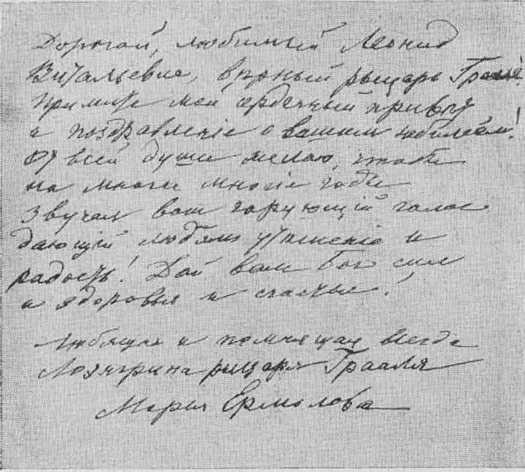 Дорогой, любимый Леонид
Витальевич, верный рыцарь Грааля!
Примите мой сердечный привет
и поздравленіе с вашим юбилеем!
От всей души желаю, чтобы
на многие многіе годы
звучал ваш чарующій голос
дающій людям утешеніе и
радость! Дай вам Бог сил
и здоровья и счастье!
Любящая и помнящая всегда
Лоэнгрина рыцаря Грааля
Мария Ермолова